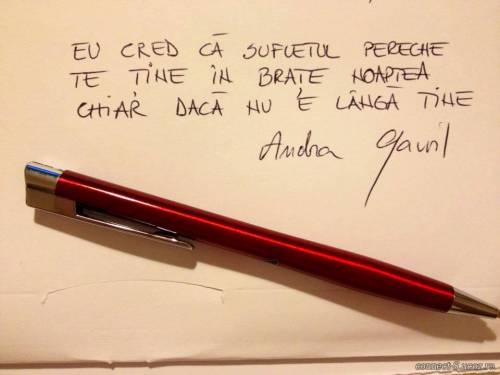 EU CRED CĂ SUFLETUL PERECHE
TE ȚINE ÎN BRAȚE NOAPTEA
CHIAR DACĂ NU E LÂNGĂ TINE
Andra Gavril